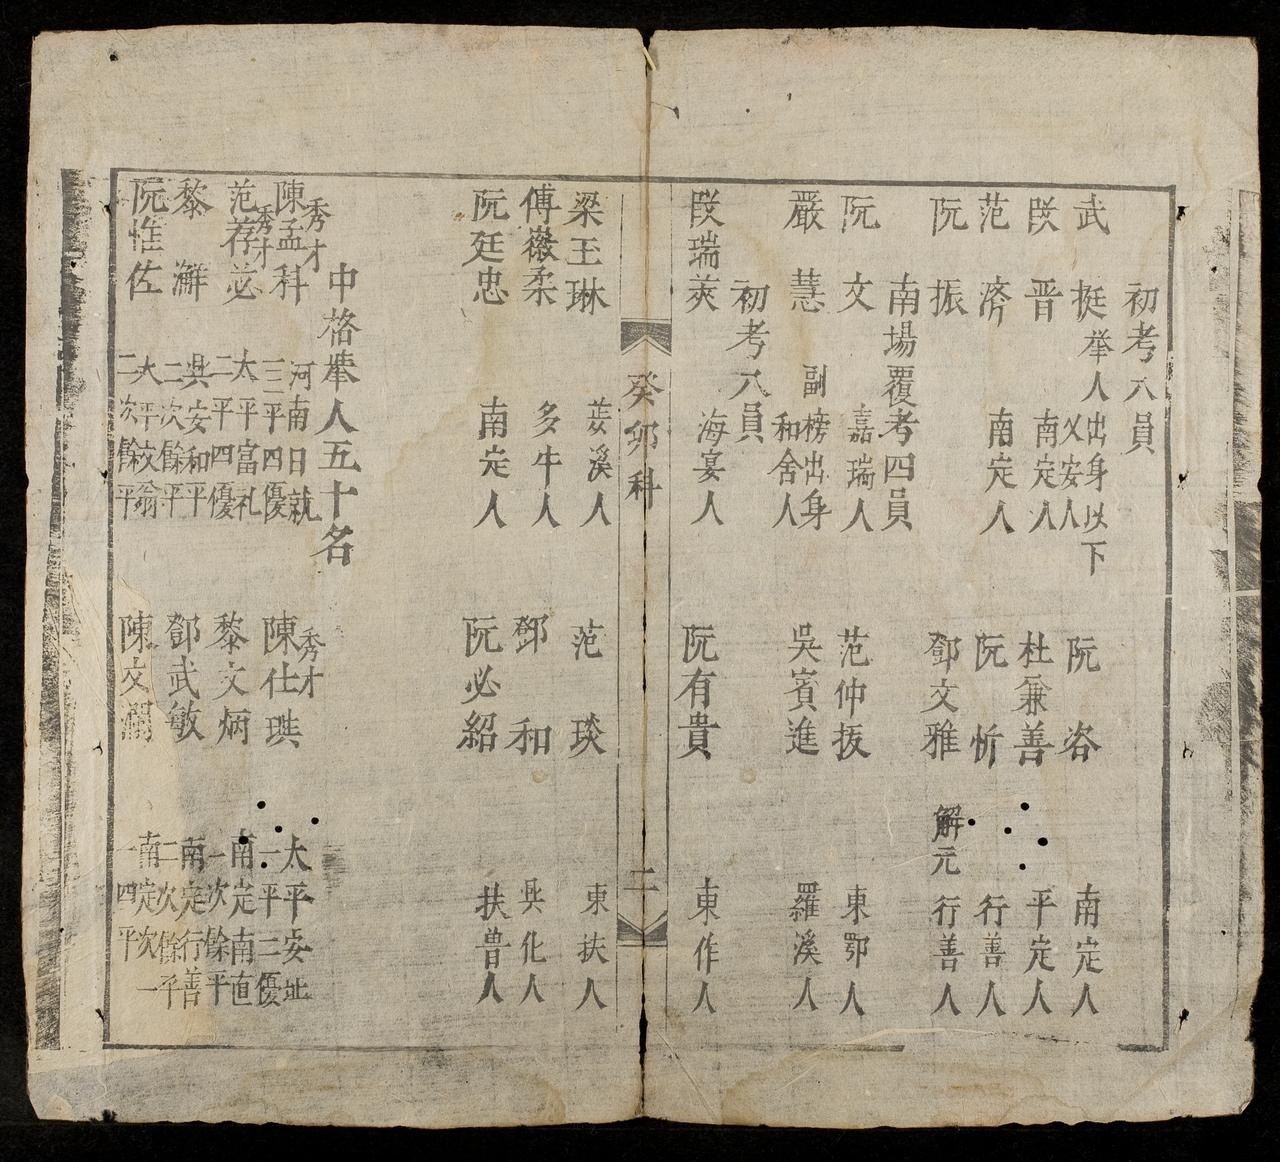 初考八員
武挺 举人出身以下 乂安人 阮咨 南定人
段晋 南定人 杜兼善 平定人
范济 南定人 阮忻 行善人
阮振 鄧文雅 解元 行善人
南場覆考四員
阮文 嘉瑞人 范仲扳 東鄂人
嚴慧 副榜出身 和舍人 吳賓進 羅溪人
初考八員
段瑞萸 海宴人 阮有貴 東作人
癸卯科 二
梁玉琳 姜溪人 范琰 東扶人
傅薇柔 多牛人 鄧和 興化人
阮廷忠 南定人 阮必紹 扶豊人
中格举人五十名
秀才 陳孟科 河南日就 三平四優 秀才 陳仕琪 太平安址 一平二優
秀才 范荐必 太平富礼 二平四優 黎文炳 南定南直 一次餘平
黎澥 興安和平 二次餘平 鄧武敏 南定行善 二次餘平
阮惟佐 太平文翁 二次餘平 陳文瀾 南定 一次一四平